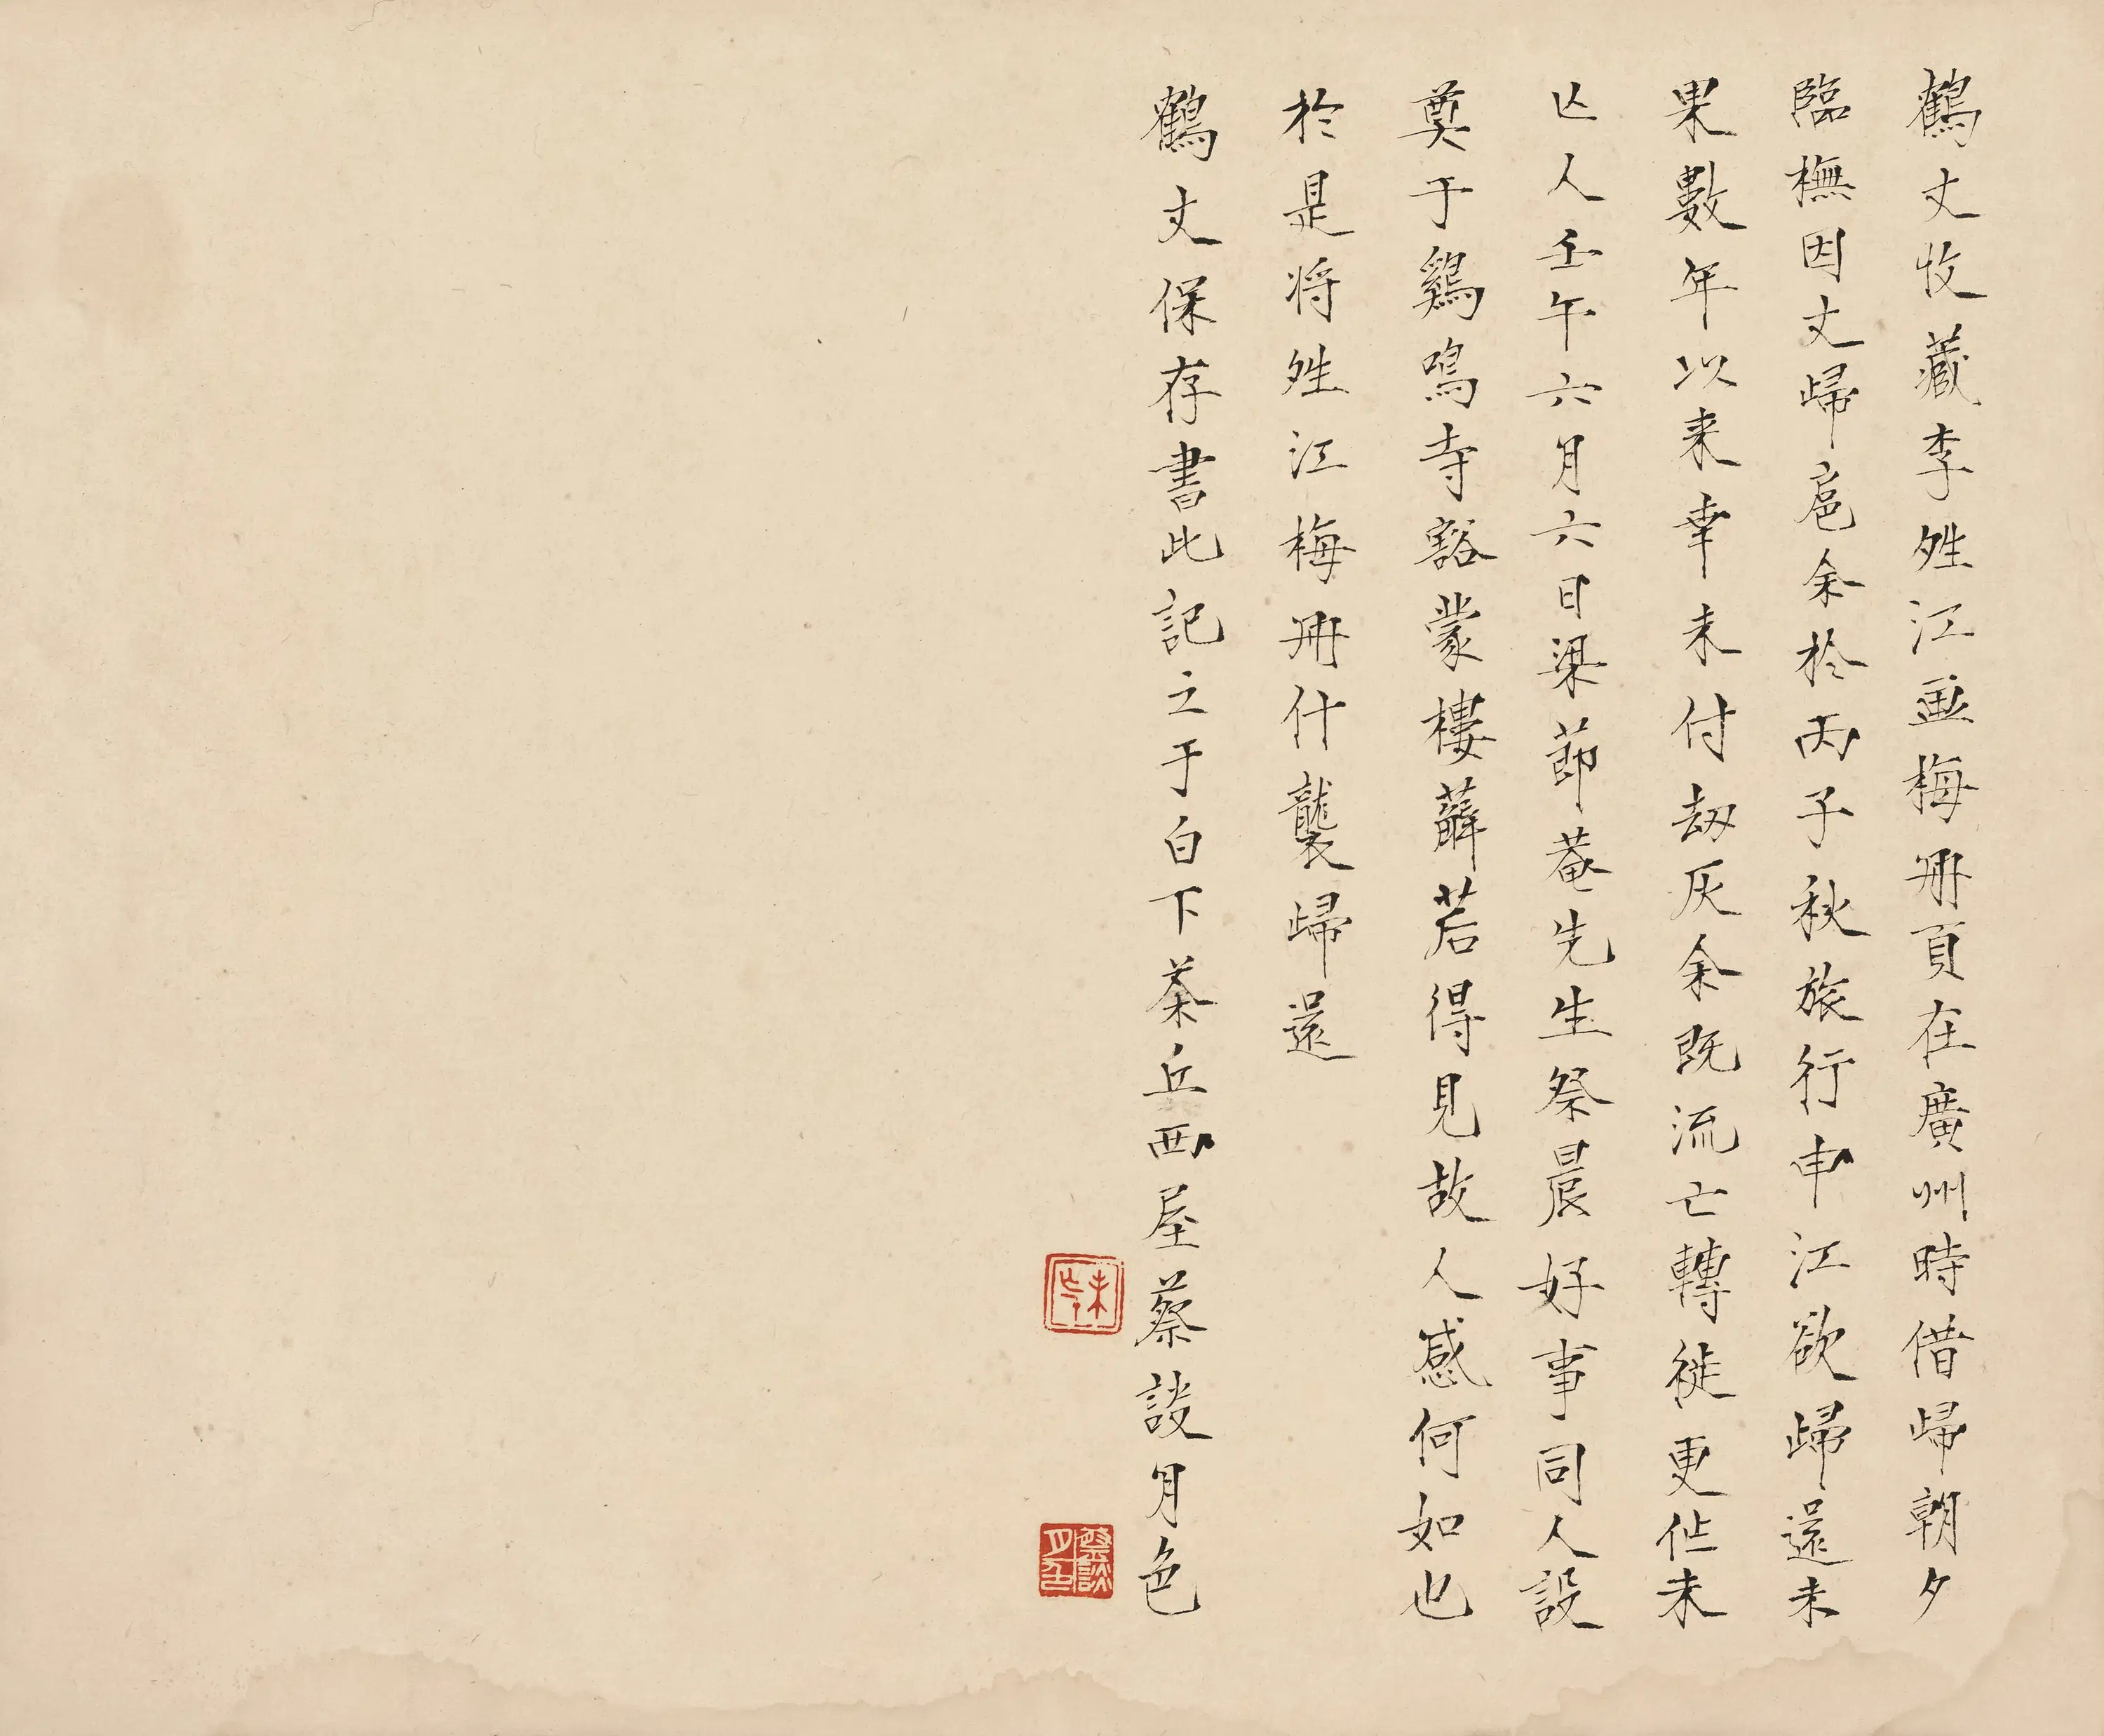 鶴丈收藏李甡江畫梅冊頁在廣州時借歸朝夕
臨橅因丈歸扈余於丙子秋旅行申江欲歸還未
果數年以來幸未付劫灰余既流亡轉徙更作未
亾人壬午六月六日梁節菴先生祭晨好事同人設
奠于鷄鳴寺豁蒙樓薜若得見故人感何如也
於是将甡江梅冊什襲歸還
鶴丈保存書此記之于白下茶丘西屋蔡談月色
蔡談月色